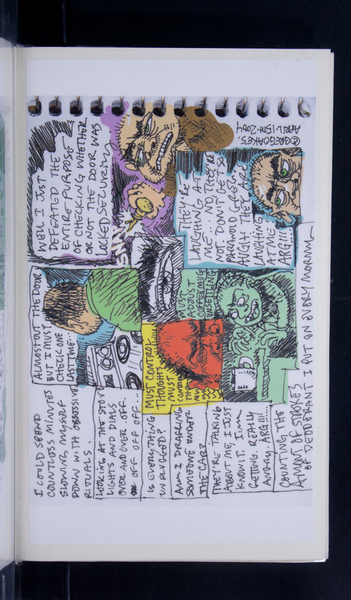 I COULD SPEND
COUNTLESS MINUTES
SLOWING MYSELF
DOWN WITH OBSESSIVE
RITUALS.
ALMOST OUT THE DOOR
BUT I MUST
CHECK ONE
LAST TIME.
WELL I JUST
DEFEATED THE
ENTIRE PURPOSE
OF CHECKING WHETHER
OR NOT THE DOOR WAS
LOCKED SECURELY
LOOKING AT THE STOVE
LIGHTS AND DIALS
OVER AND OVER OFF.
OFF OFF OFF...
IS EVERYTHING
UNPLUGGED?
MUST CONTROL
THOUGHTS
MUST
CONTROL
AM I DRAGGING
SOMEONE UNDER
THE CAR?
MUST
ADJUST
THEY'RE
LAUGHING AT
ME. NO THEY'RE
NOT. DON'T BE SO
PARANOID GREG.
AUGH THEY'RE
LAUGHING
AT ME
ARG!!!
THEY'RE TALKING
ABOUT ME, I JUST
KNOW IT. I'M
GETTING REALLY
ANGRY. ARG!!!
COUNTING THE
AMOUNT OF STROKES
OF DEODORANT I PUT ON EVERY MORNING
©GREGOAKES.
APRIL-15TH-2004